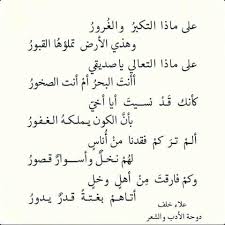 على ماذا التكبرُ والغُرورُ
وهذي الأرض تملؤها القبورُ
على ماذا التعالي ياصديقي
أأنتَ البحرُ أمْ أنت الصخورُ
كأنك قدْ نسيتَ أيا أخيَّ
بأنَّ الكون يملكهُ الغفورُ
ألمْ تر كمْ فقدنا منْ أُناسٍ
لهُمْ نخلٌ وأسوارٌ قصورُ
وكمْ فارقتَ مِنْ أهلٍ وخلٍ
أتاهمْ بغتةً قدرٌ يدورُ
علاء خلف
دوحة الأدب والشعر